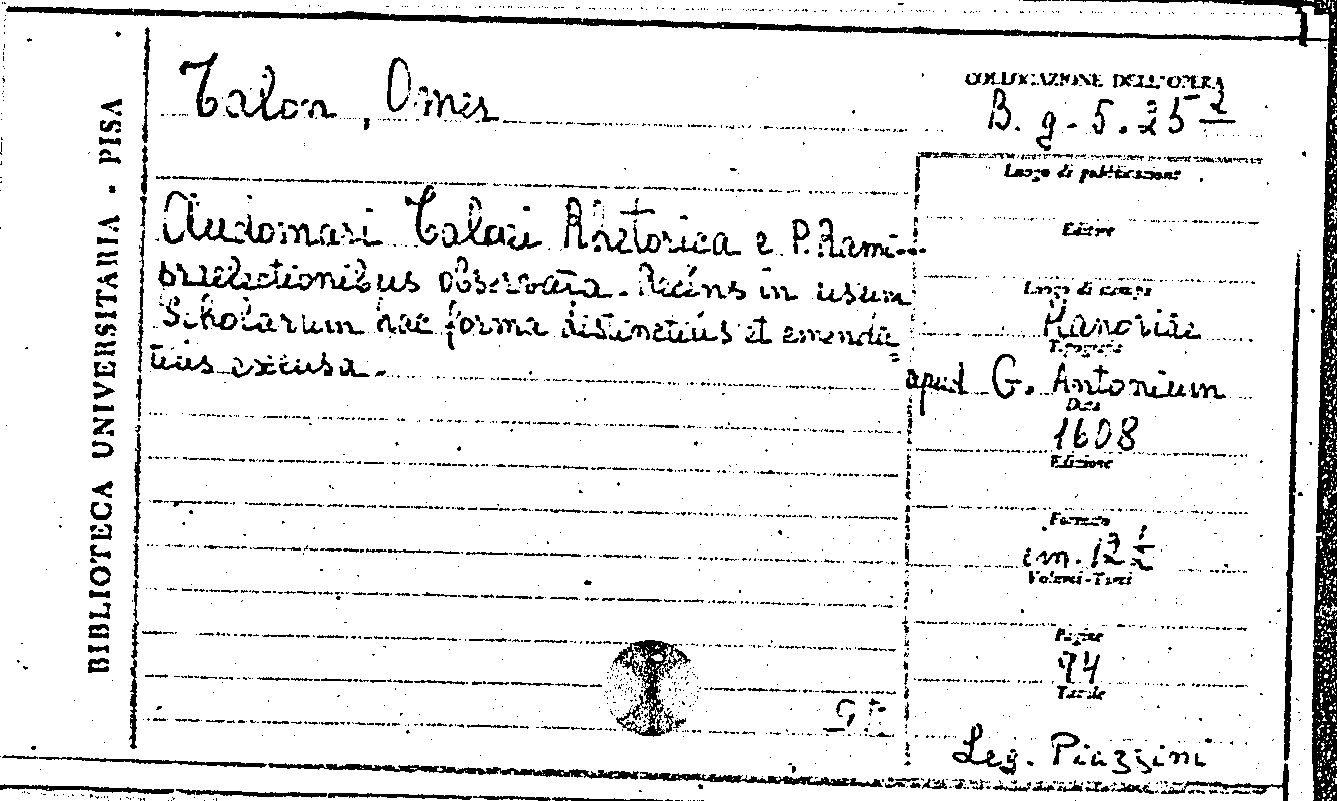 BIBLIOTECA UNIVERSITARIA - PISA
Talon, Omer
COLLOCAZIONE DELL'OPERA
B. g. 5. 25 2
Audomari Talaei Rhetorica e P. Rami
praelectionibus observata. Recèns in usum
Scholarum hac forma distinctiùs et emenda=
tiùs excusa.
Luogo di pubblicazione
Editore
Luogo di stampa
Hanoviae
Tipografia
apud G. Antonium
Data
1608
Edizione
Formato
cm. 12 1/2
Volumi-Tomi
Pagine
94
Tavole
Leg. Piazzini